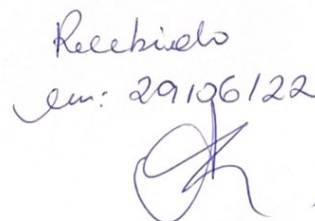 Recebindo
em: 29/06/22